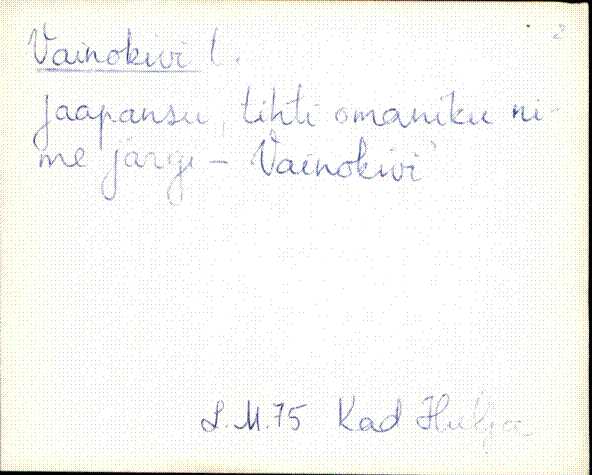 Vainokivi l.
Jaapansu, tihti omaniku ni-
me järgi – Vainokivi
L.M.75 Kad Hulja